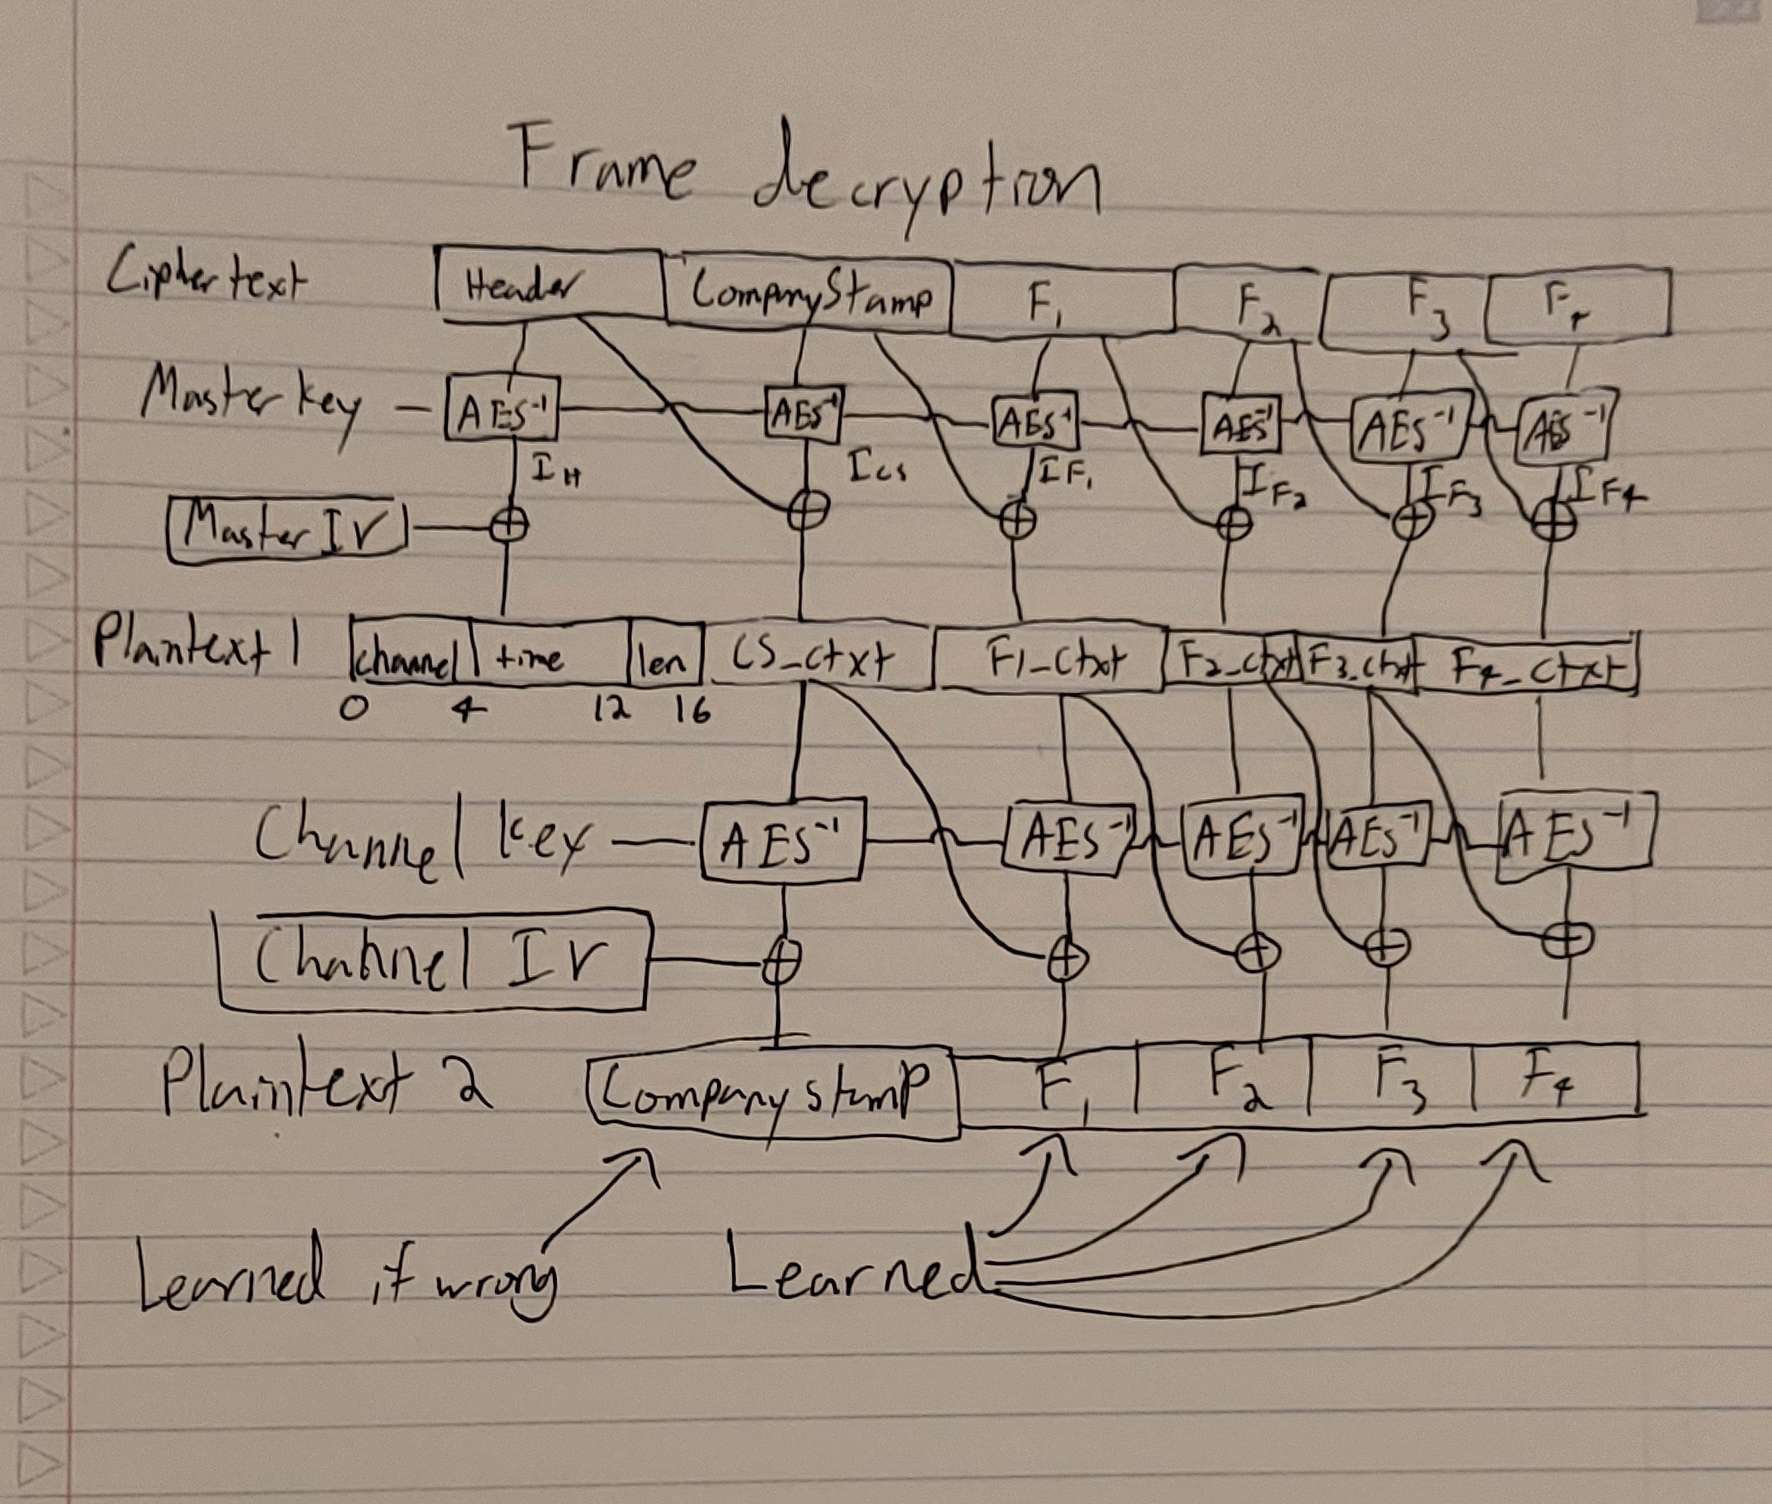 Frame decryption
Ciphertext Header CompanyStamp F₁ F₂ F₃ F₄
Master key AES⁻¹ AES⁻¹ AES⁻¹ AES⁻¹ AES⁻¹ AES⁻¹
I_H I_CS I_F₁ I_F₂ I_F₃ I_F₄
Master IV
Plaintext 1 channel time len CS_ctxt F1_ctxt F2_ctxt F3_ctxt F4_ctxt
0 4 12 16
Channel key AES⁻¹ AES⁻¹ AES⁻¹ AES⁻¹ AES⁻¹
Channel IV
Plaintext 2 Company stamp F₁ F₂ F₃ F₄
Learned if wrong Learned